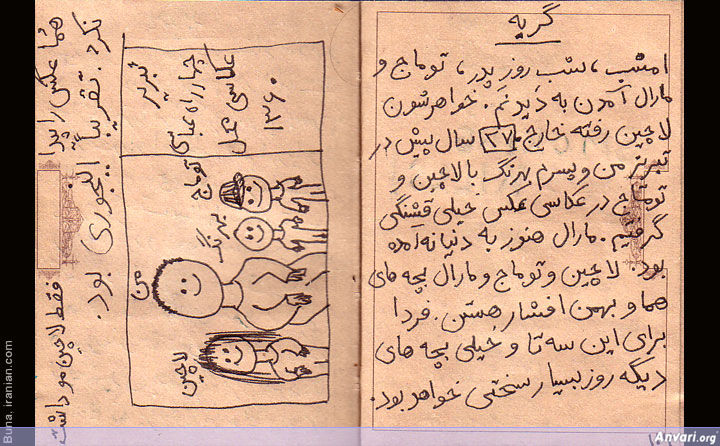 گریه
امشب، شب روز پدر، توماج و
مارال آمدن به دیدنم. خواهرشون
لاچین رفته خارج. ۲۷ سال پیش در
تبریز من و پسرم بهرنگ با لاچین و
توماج در عکاسی عکس خیلی قشنگی
گرفتیم. مارال هنوز به دنیا نه آمده
بود. لاچین و توماج و مارال بچه های
هما و بهمن افشار هستن. فردا
برای این سه تا و خیلی بچه های
دیگه روز بسیار سختی خواهد بود.
هما عکس را پیدا
نکرد. تقریباً اینجوری بود.
فقط لاچین مو داشت
تبریز
چهار راه عباسی
عکاسی عمل
۱۳۶۰
توماج
بهرنگ
من
لاچین
Buna. iranian.com
Anvari.org